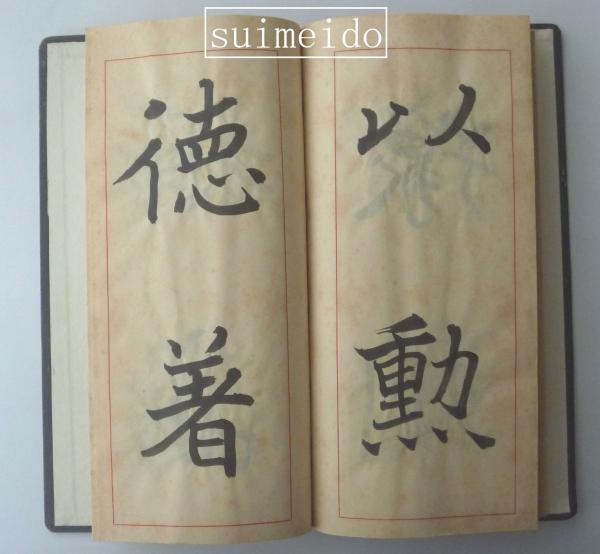 suimeido
以勲
徳著